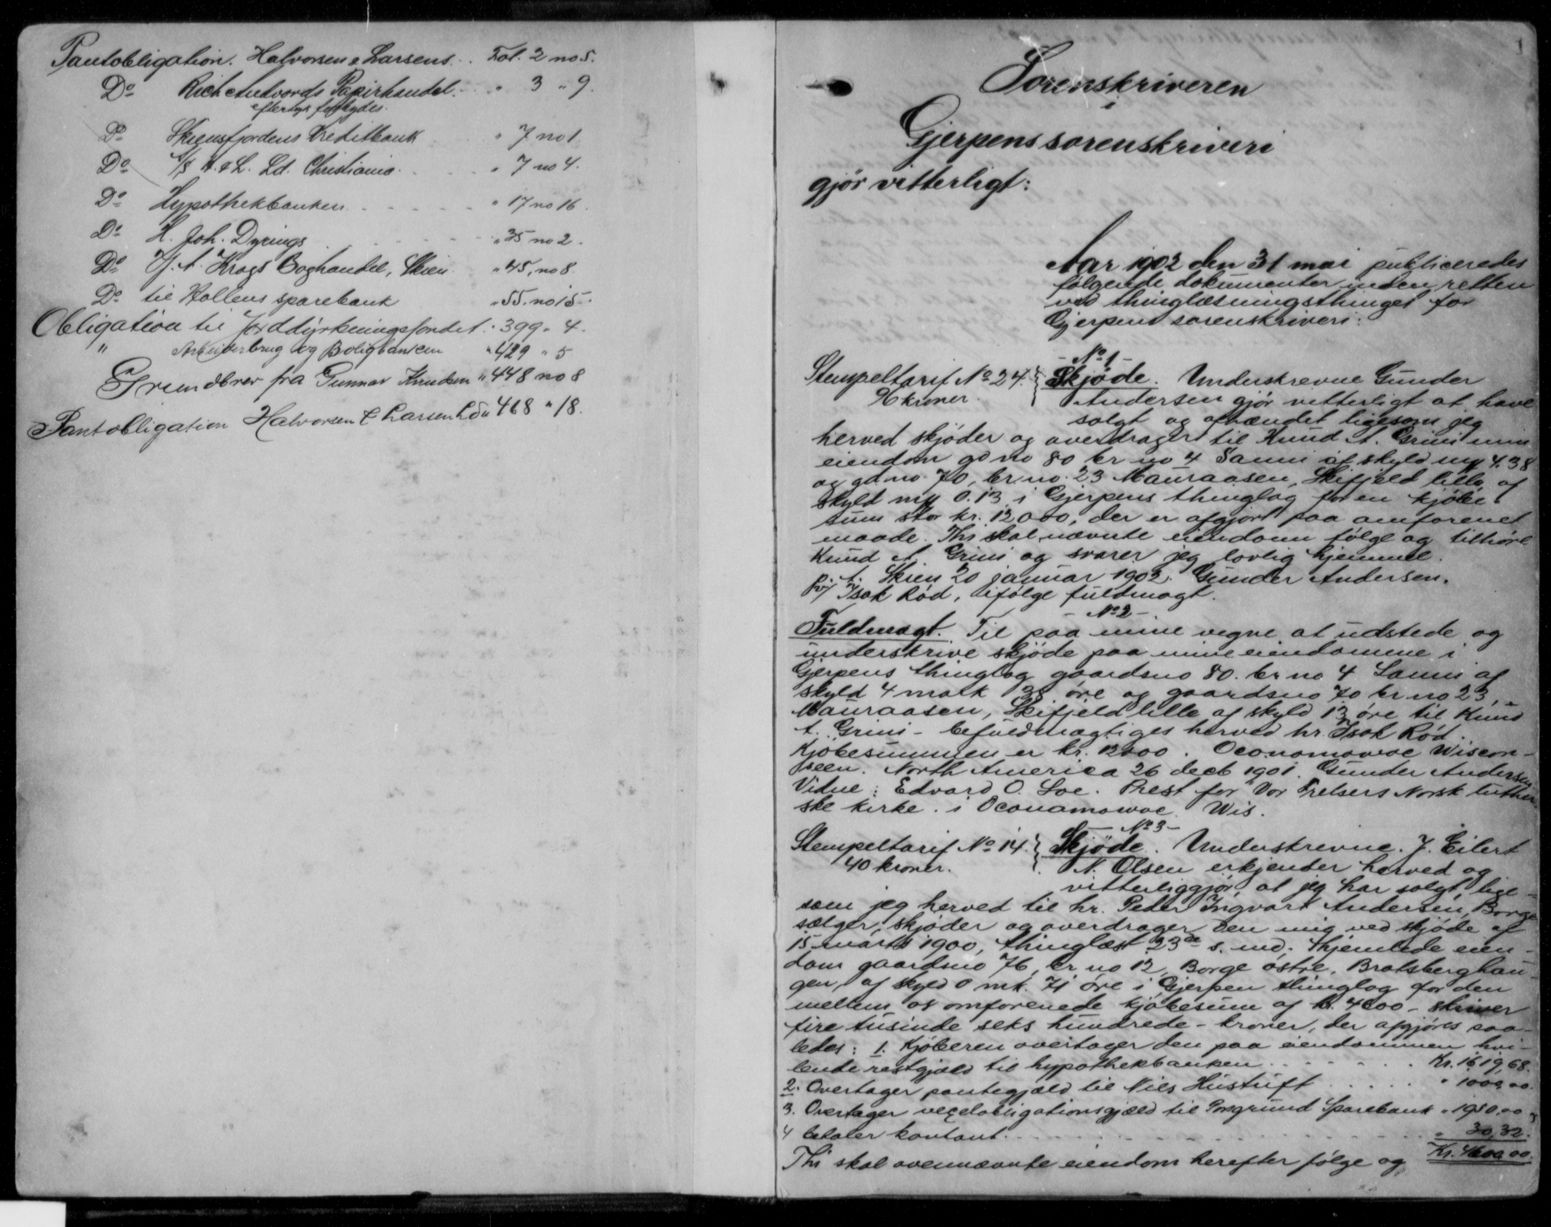 Pantobligation. Halvorsen & Larsens. Fol. 2 no 5.
Do Rich Andvords Papirhandel. " 3 " 9.
Do Skiensfjordens Kreditbank " 7 no 1
Do A/S H. & L. Ld. Christiania " 7 no 4.
Do Hypothekbanken " 17 no 16.
Do H. Joh. Dyrings " 35 no 2.
Do H. A. Krogs Boghandel, Skien " 45, no 8
Do til Hollens sparebank " 55. no 15
Obligation til Jorddyrkningsfondet. " 399 " 4.
" Arbeiderbrug og Boligbanken " 429 " 5
Grundbrev fra Gunnar Knudsen " 448 no 8
Pantobligation Halvorsen & Larsen Ld " 468 " 18.
1
Sorenskriveren
i
Gjerpens sorenskriveri
gjør vitterligt:
Aar 1902 den 31 mai publiceredes
følgende dokumenter inden retten
ved thinglæsningsthinget for
Gjerpens sorenskriveri:
No 1
Stempeltarif No 24. Skjøde. Underskrevne Gunder
96 kroner. Andersen gjør vitterligt at have
solgt og afhændet ligesom jeg
herved skjøder og overdrager til Knud A. Grini min
eiendom gd no 80 br no 4 Sanni af skyld my 4.38
og gd no. 70, br. no. 23 Mauraasen, Skifjeld lille af
skyld my 0.13 i Gjerpens thinglag for en kjøbe-
sum stor kr. 12000, der er afgjort paa omforenet
maade. Thi skal nævnte eiendom følge og tilhøre
Knud A. Grini og svarer jeg lovlig hjemmel.
p. t. Skien 20 januar 1902. Gunder Andersen.
ved Isak Rød, ifølge fuldmagt.
No 2
Fuldmagt. Til paa mine vegne at udstede og
underskrive skjøde paa mine eiendomme i
Gjerpens thinglag gaardsno 80. br no 4 Sanni af
skyld 4 mark 38 øre og gaardsno 70 br no 23,
Mauraasen, Skifjeld lille af skyld 13 øre til Knud
A. Grini - befuldmægtiges herved hr. Isak Rød.
Kjøbesummen er kr. 12000. Oconomowoc Wiscon-
seen. North America 26 decb 1901. Gunder Andersen
Vidne: Edvard O. Loe. Prest for Vor Frelsers Norsk luther-
ske kirke. i Oconamowoc Wis.
No 3
Stempeltarif No 14. Skjøde. Underskrevne. J. Eilert
40 kroner. N. Olsen erkjender herved og
vitterliggjør at jeg har solgt, lige-
som jeg herved til hr. Peder Ingvart Andersen, Borge
sælger, skjøder og overdrager den mig ved skjøde af
15 marts 1900, thinglæst 23de s. md. hjemlede eien-
dom gaardsno 76, br no 12, Borge østre, Bratsberghau-
gen, af skyld 0 mk. 71 øre i Gjerpen thinglag for den
mellem os omforenede kjøbesum af kr. 4600 - skriver
fire tusinde seks hundrede - kroner, der afgjøres saa-
ledes: 1. Kjøberen overtager den paa eiendommen hvi-
lende restgjæld til hypothekbanken Kr. 1619,68.
2. Overtager pantegjæld til Niels Hustruft " 1000,00.
3. Overtager vexelobligationsgjæld til Porsgrund Sparebank " 1950,00
4 betaler kontant " 30,32.
Thi skal ovennævnte eiendom herefter følge og Kr. 4600,00.